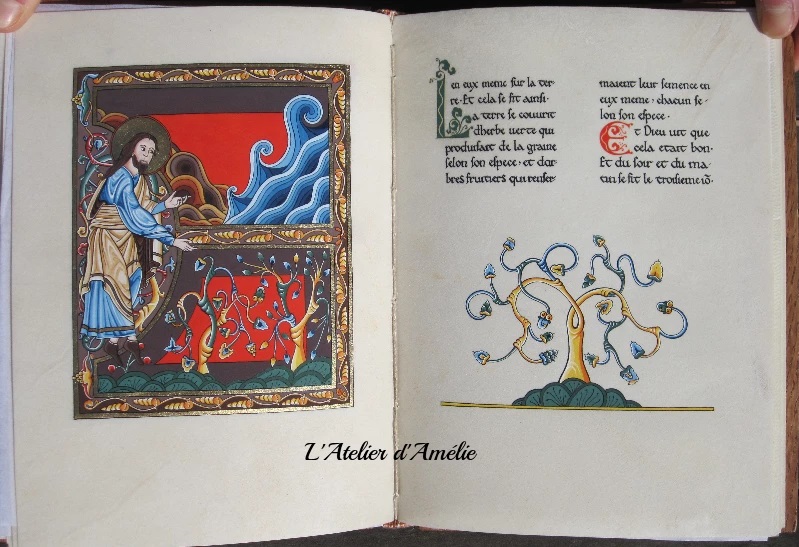 en eux meme sur la ter-
re · Et cela se fit ainsi ·
La terre se couvrit
d'herbe verte qui
produisait de la graine
selon son espece · et d'ar
bres fruitiers qui renfer
maient leur semence en
eux meme · chacun se-
lon son espece ·
Et Dieu vit que
cela etait bon ·
Et du soir et du ma-
tin se fit le troisieme
L'Atelier d'Amélie